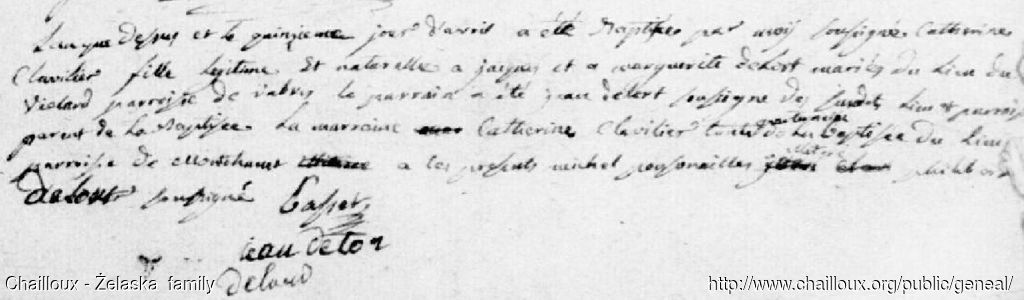 Lan que dessus et le quinzieme jour d'avril a été Baptisee par moy soussigné Catherine
Clavilier fille legitime et naturelle a jacques et a marguerite delort mariés du Lieu du
Vielard parroisse de vabres le parrain a été jean delort soussigné des Lieu et parroisse
parent de La Baptisee La marraine Catherine Clavilier tante paternelle de La Baptisee du Lieu
parroisse de a tes presents michel
delort soussigné Basset
jean delor
delord
Chailloux - Żelaska family
http://www.chailloux.org/public/geneal/